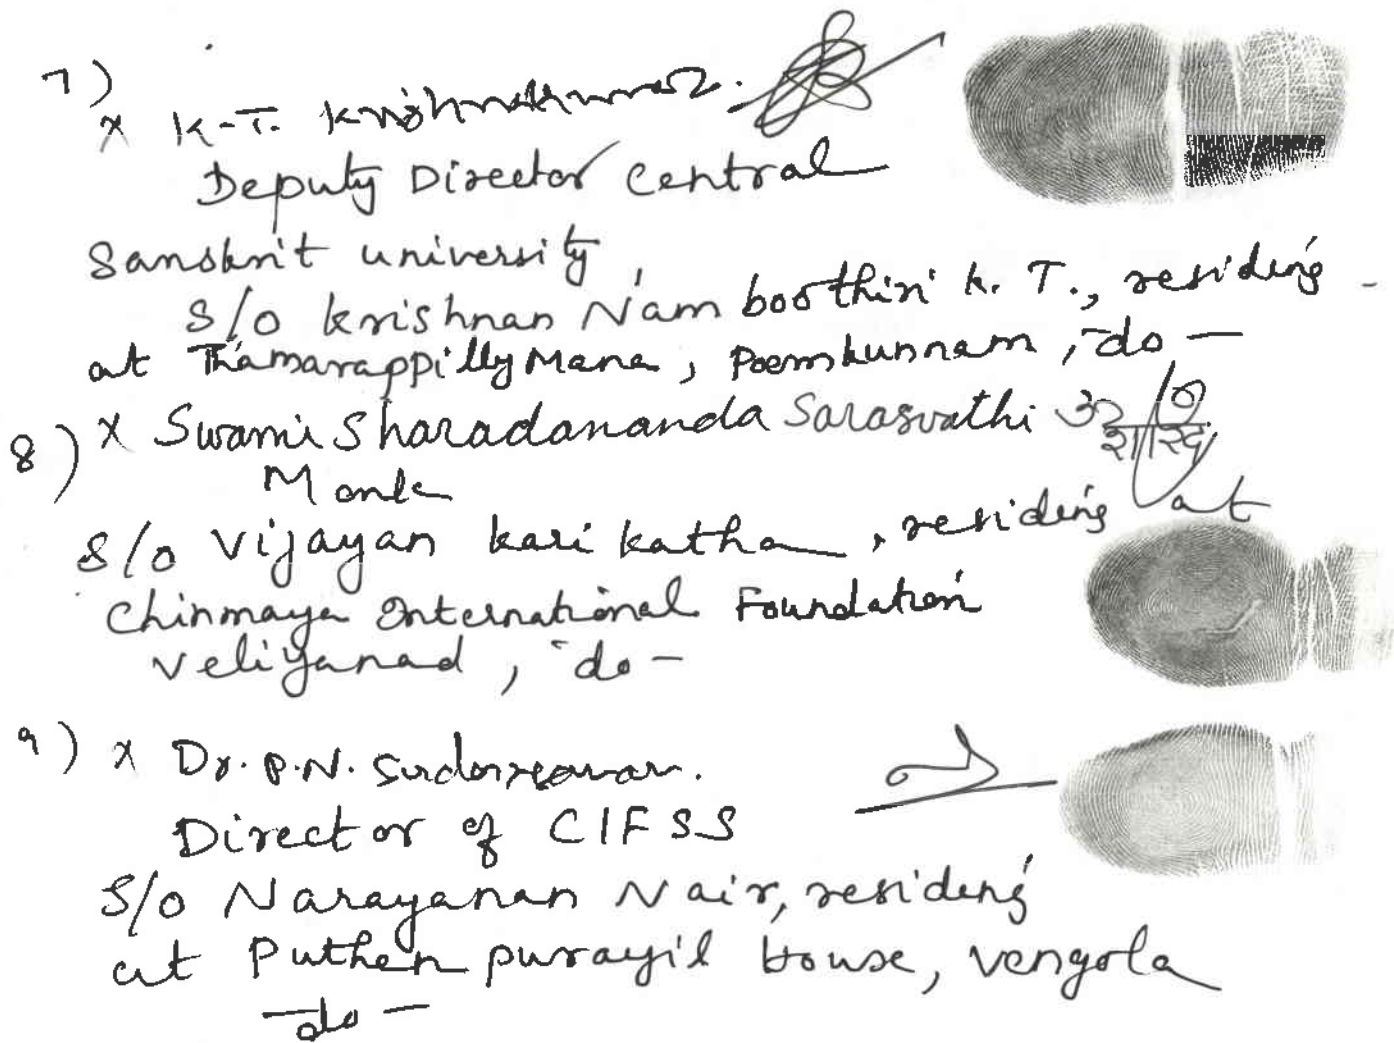 7)
x K.T. Krishnakumar.
Deputy Director Central
Sanskrit university,
S/o Krishnan Nam boothiri K. T., residing
at Thamarappilly Mana, Poemkunnam, -do-
8) x Swami Sharadananda Sarasvathi ॐ
Monk
S/o Vijayan kari katha, residing at
Chinmaya International Foundation
Veliyanad, -do-
9) x Dr. P.N. Sudarsanan.
Director of CIFSS
S/o Narayanan Nair, residing
at Puthen purayil House, Vengola
-do-